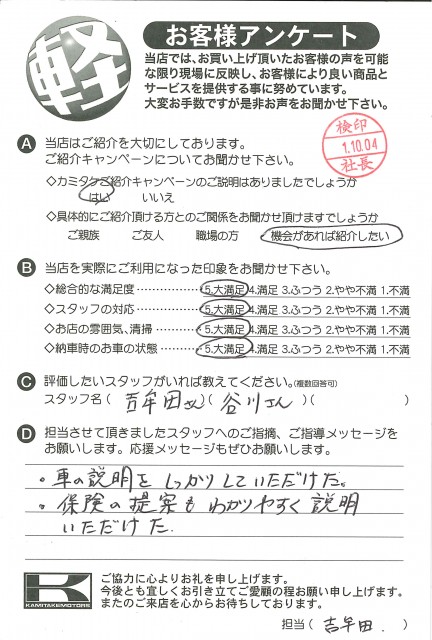 軽
お客様アンケート
当店では、お買い上げ頂いたお客様の声を可能
な限り現場に反映し、お客様により良い商品と
サービスを提供する事に努めています。
大変お手数ですが是非お声をお聞かせ下さい。
検印
1.10.04
社長
A 当店はご紹介を大切にしております。
ご紹介キャンペーンについてお聞かせ下さい。
◇カミタケご紹介キャンペーンのご説明はありましたでしょうか
はい いいえ
◇具体的にご紹介頂ける方とのご関係をお聞かせ頂けますでしょうか
ご親族 ご友人 職場の方 機会があれば紹介したい
B 当店を実際にご利用になった印象をお聞かせ下さい。
◇総合的な満足度 5.大満足 4.満足 3.ふつう 2.やや不満 1.不満
◇スタッフの対応 5.大満足 4.満足 3.ふつう 2.やや不満 1.不満
◇お店の雰囲気、清掃 5.大満足 4.満足 3.ふつう 2.やや不満 1.不満
◇納車時のお車の状態 5.大満足 4.満足 3.ふつう 2.やや不満 1.不満
C 評価したいスタッフがいれば教えてください。(複数回答可)
スタッフ名(吉牟田さん)(谷川さん)( )
D 担当させて頂きましたスタッフへのご指摘、ご指導メッセージを
お願いします。応援メッセージもぜひお願いします。
・車の説明をしっかりしていただけた。
・保険の提案もわかりやすく説明
いただけた.
K
KAMITAKEMOTORS
ご協力に心よりお礼を申し上げます。
今後とも宜しくお引き立てご愛顧の程お願い申し上げます。
またのご来店を心からお待ちしております。
担当(吉牟田.)